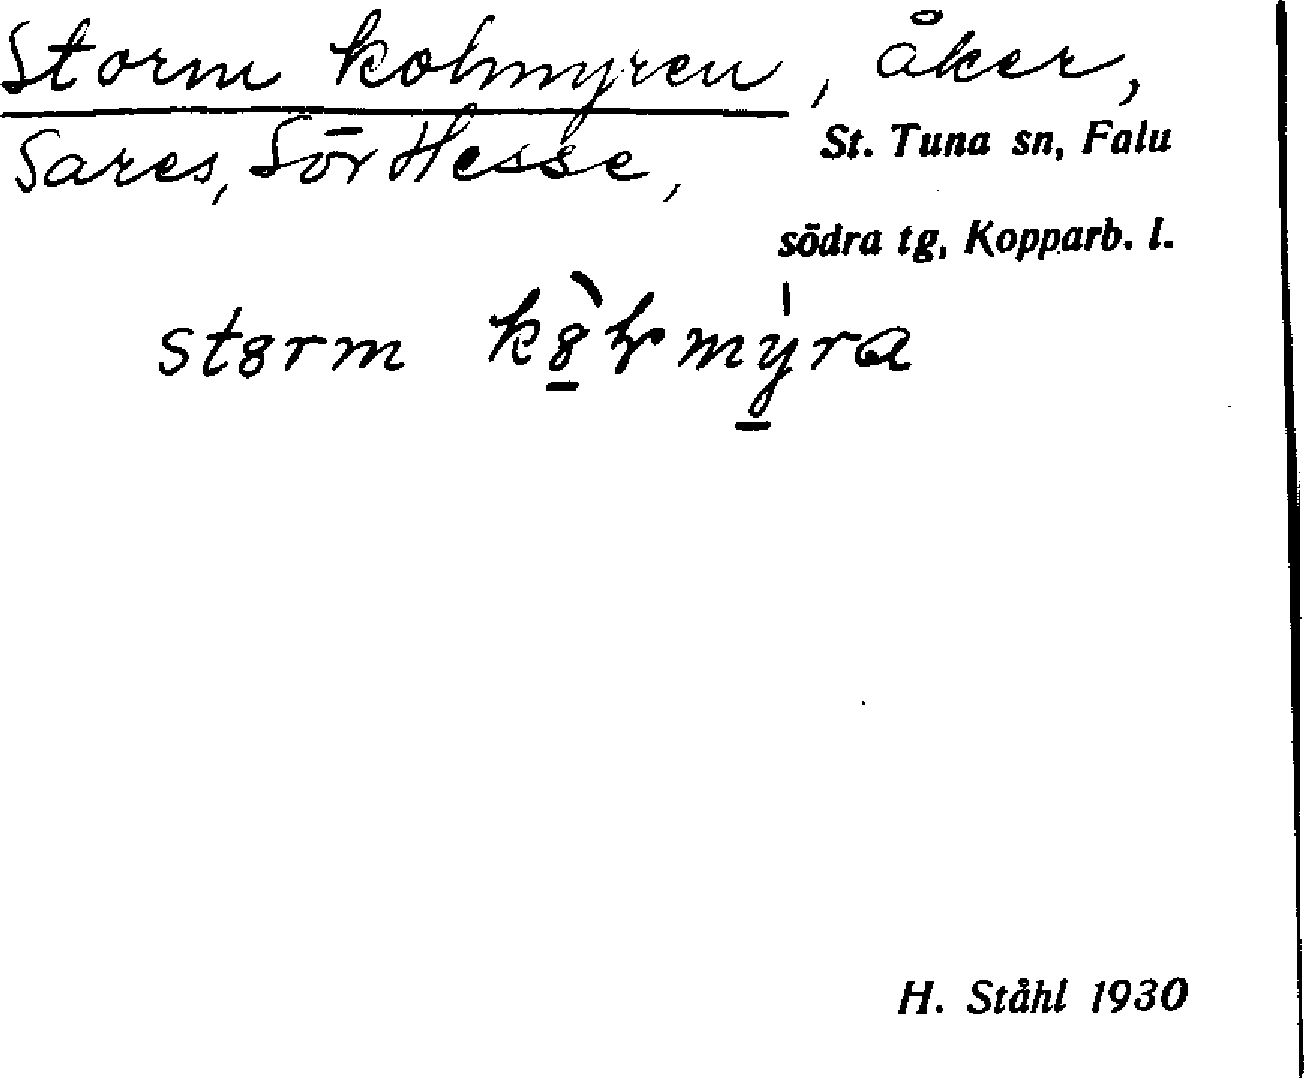 Storm kolmyren, åker,
Sares, Sör Hesse,
St. Tuna sn, Falu
södra tg, Kopparb. l.
storm kolmyra
H. Ståhl 1930